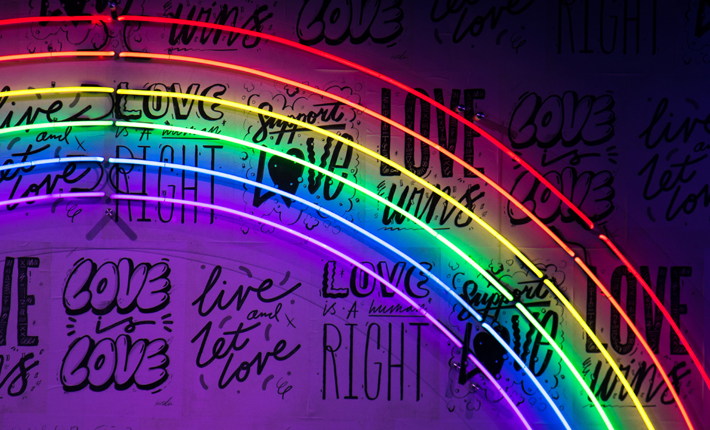 wins
LOVE
RIGHT
live
and
let
love
LOVE
is A human
RIGHT
Support
LOVE
LOVE
wins
LOVE
is
LOVE
live
and
let
love
LOVE
is
LOVE
live
and
let
love
LOVE
is A human
RIGHT
Support
LOVE
LOVE
wins